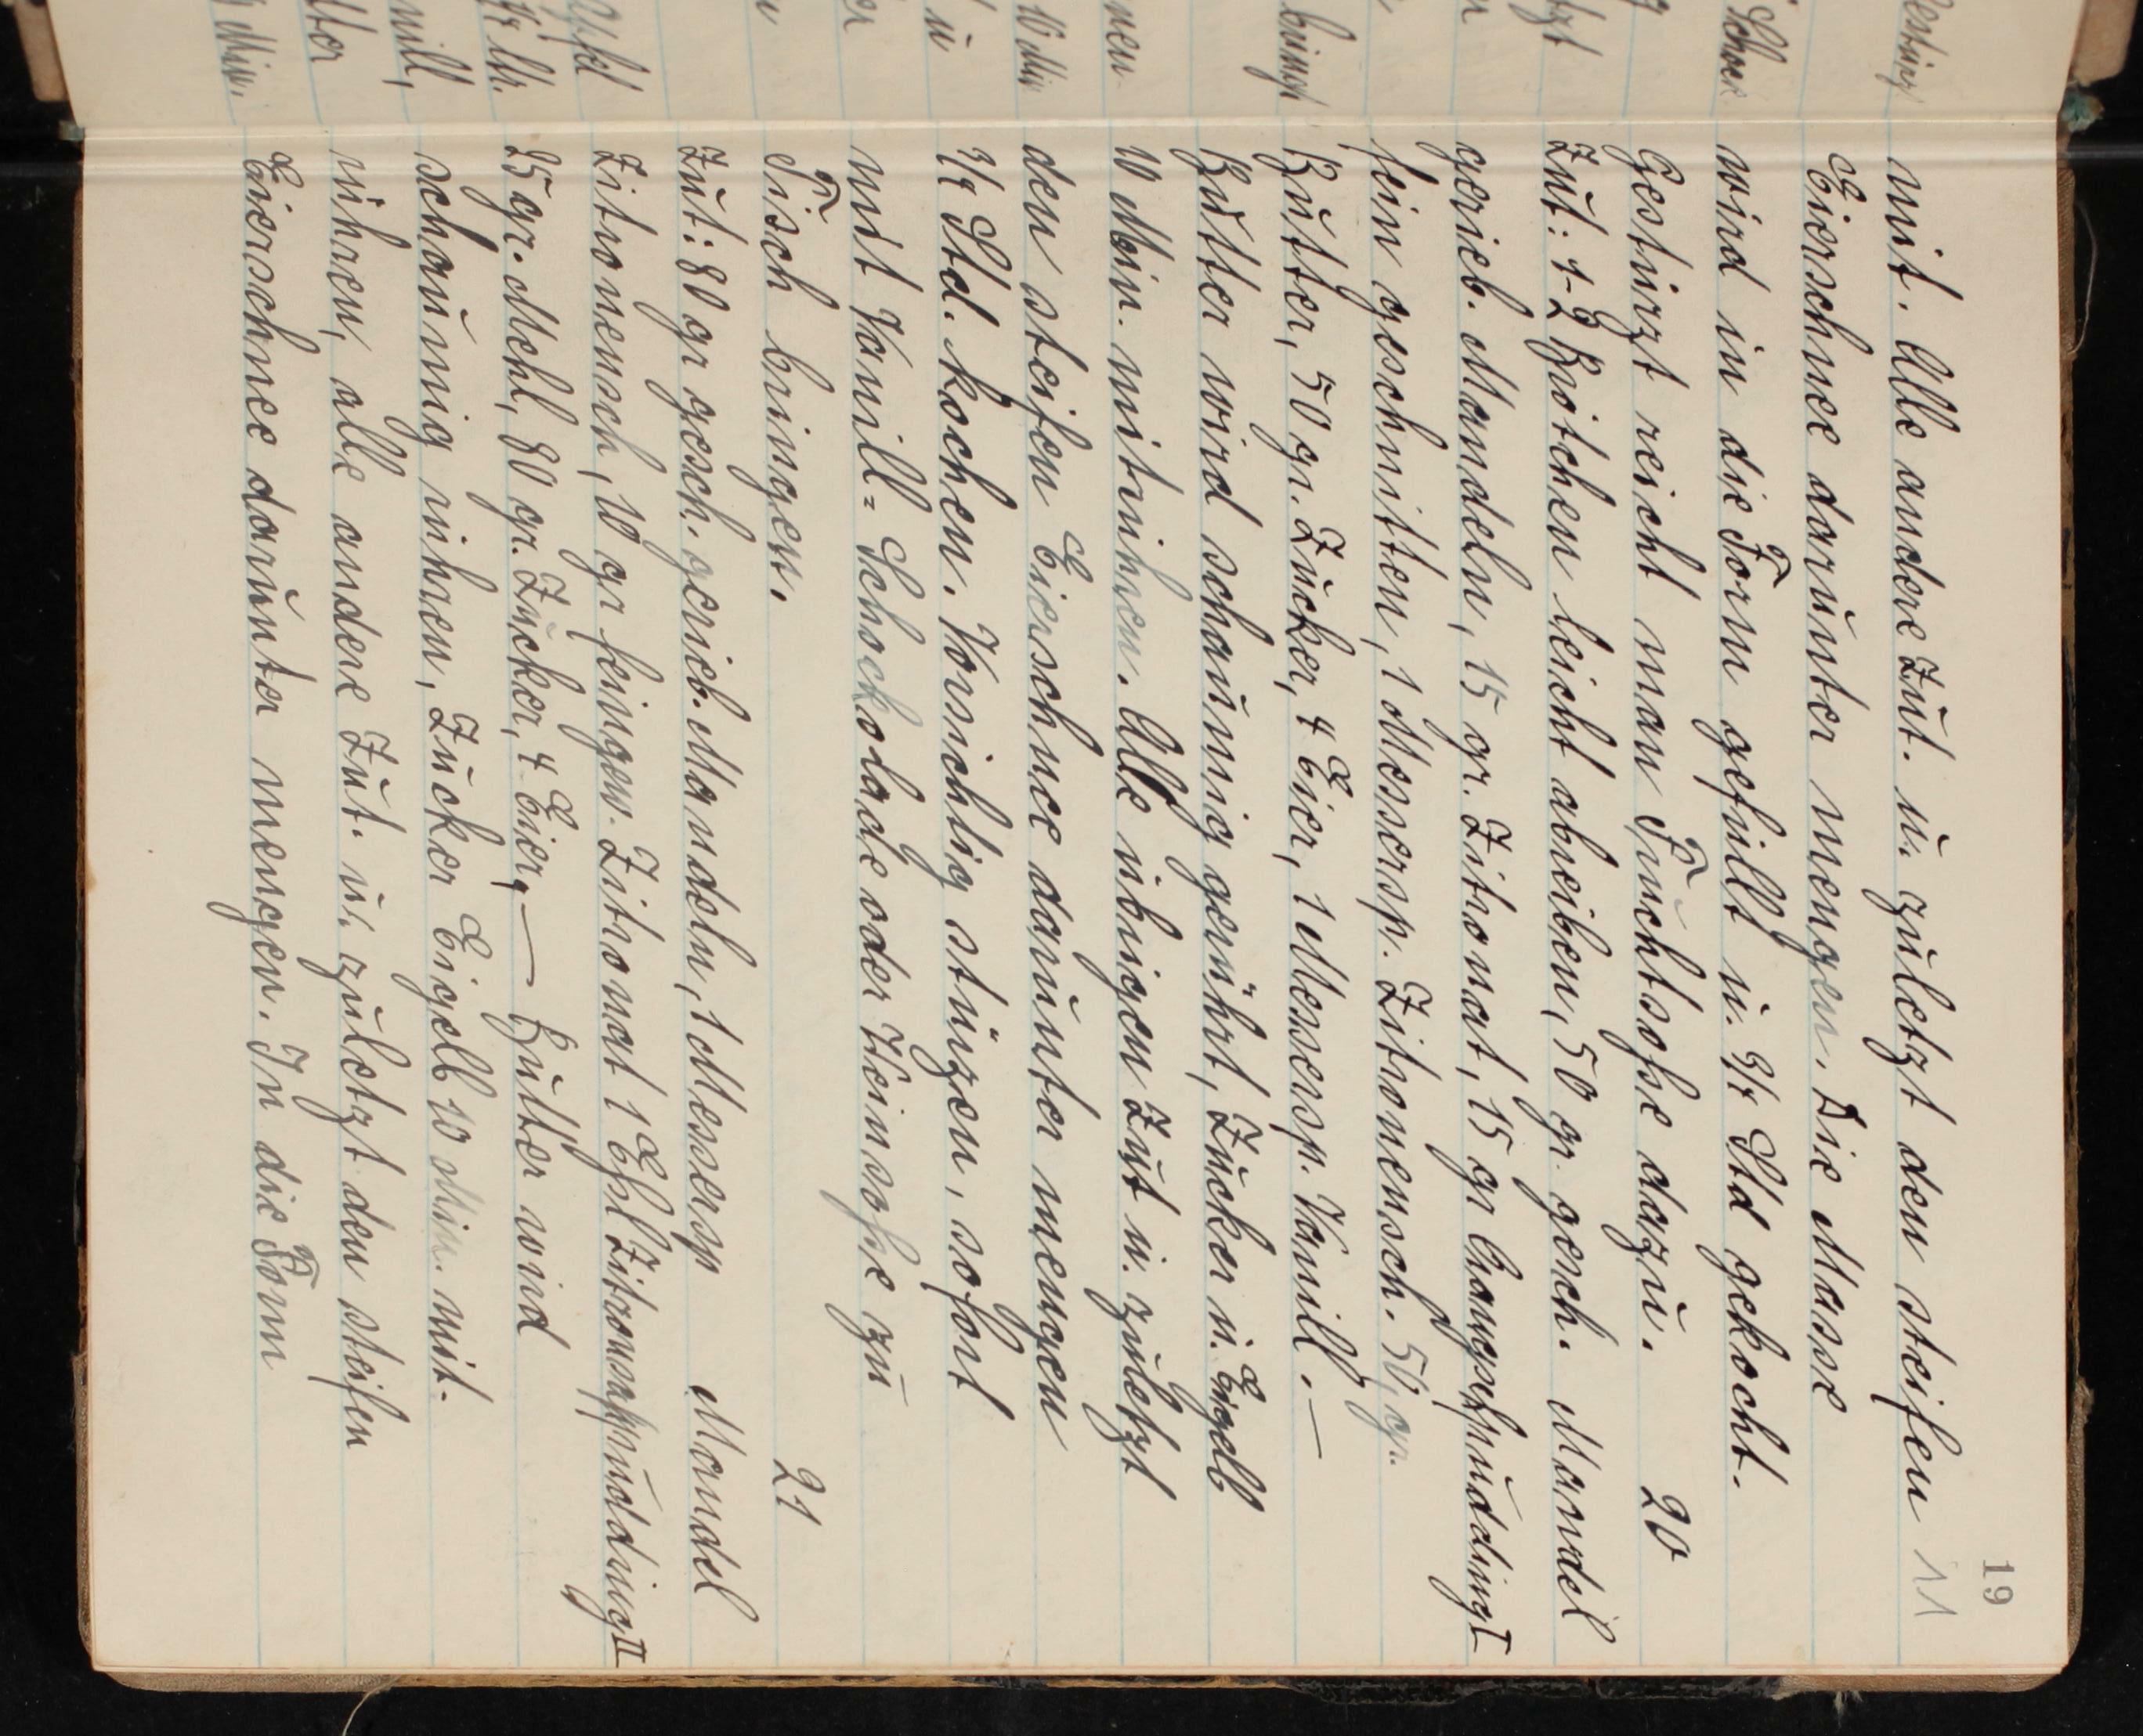 19
11
mit. Alle andere Zut. u. zuletzt den steifen
Eierschnee darunter mengen. Die Masse
wird in die Form gefüllt u. 3/4 Std gekocht.
Gestürzt reicht man Fruchtsoße dazu.
20
Zut: 1-2 Brötchen leicht abreiben, 50 gr. gesch. Mandel
gerieb. Mandeln, 15 gr. Zitronat, 15 gr Orangspuddingt I
fein geschnitten, 1 Messersp. Zitronensch. 50 gr.
Butter, 50 gr. Zucker, 4 Eier, 1 Messersp. Vanill. —
Butter wird schaumig gerührt, Zucker u. Eigelb
10 Min. mitrühren. Alle übrigen Zut u. zuletzt
den steifen Eierschnee darunter mengen
3/4 Std. kochen. Vorsichtig stürzen, sofort
mit Vanill= Schockolade oder Weinsoße zu
Tisch bringen.
21
Zut: 80 gr gesch. gerieb. Mandeln, 1 Messersp Mandel
Zitronensch, 10 gr feingew. Zitronat 1 Eßl Zitronsaft pudding II
25 gr. Mehl, 80 gr. Zucker, 4 Eier, — Butter wird
schaumig rühren, Zucker Eigelb 10 Min. mit.
rühren, alle andere Zut. u. zuletzt den steifen
Eierschnee darunter mengen. In die Form